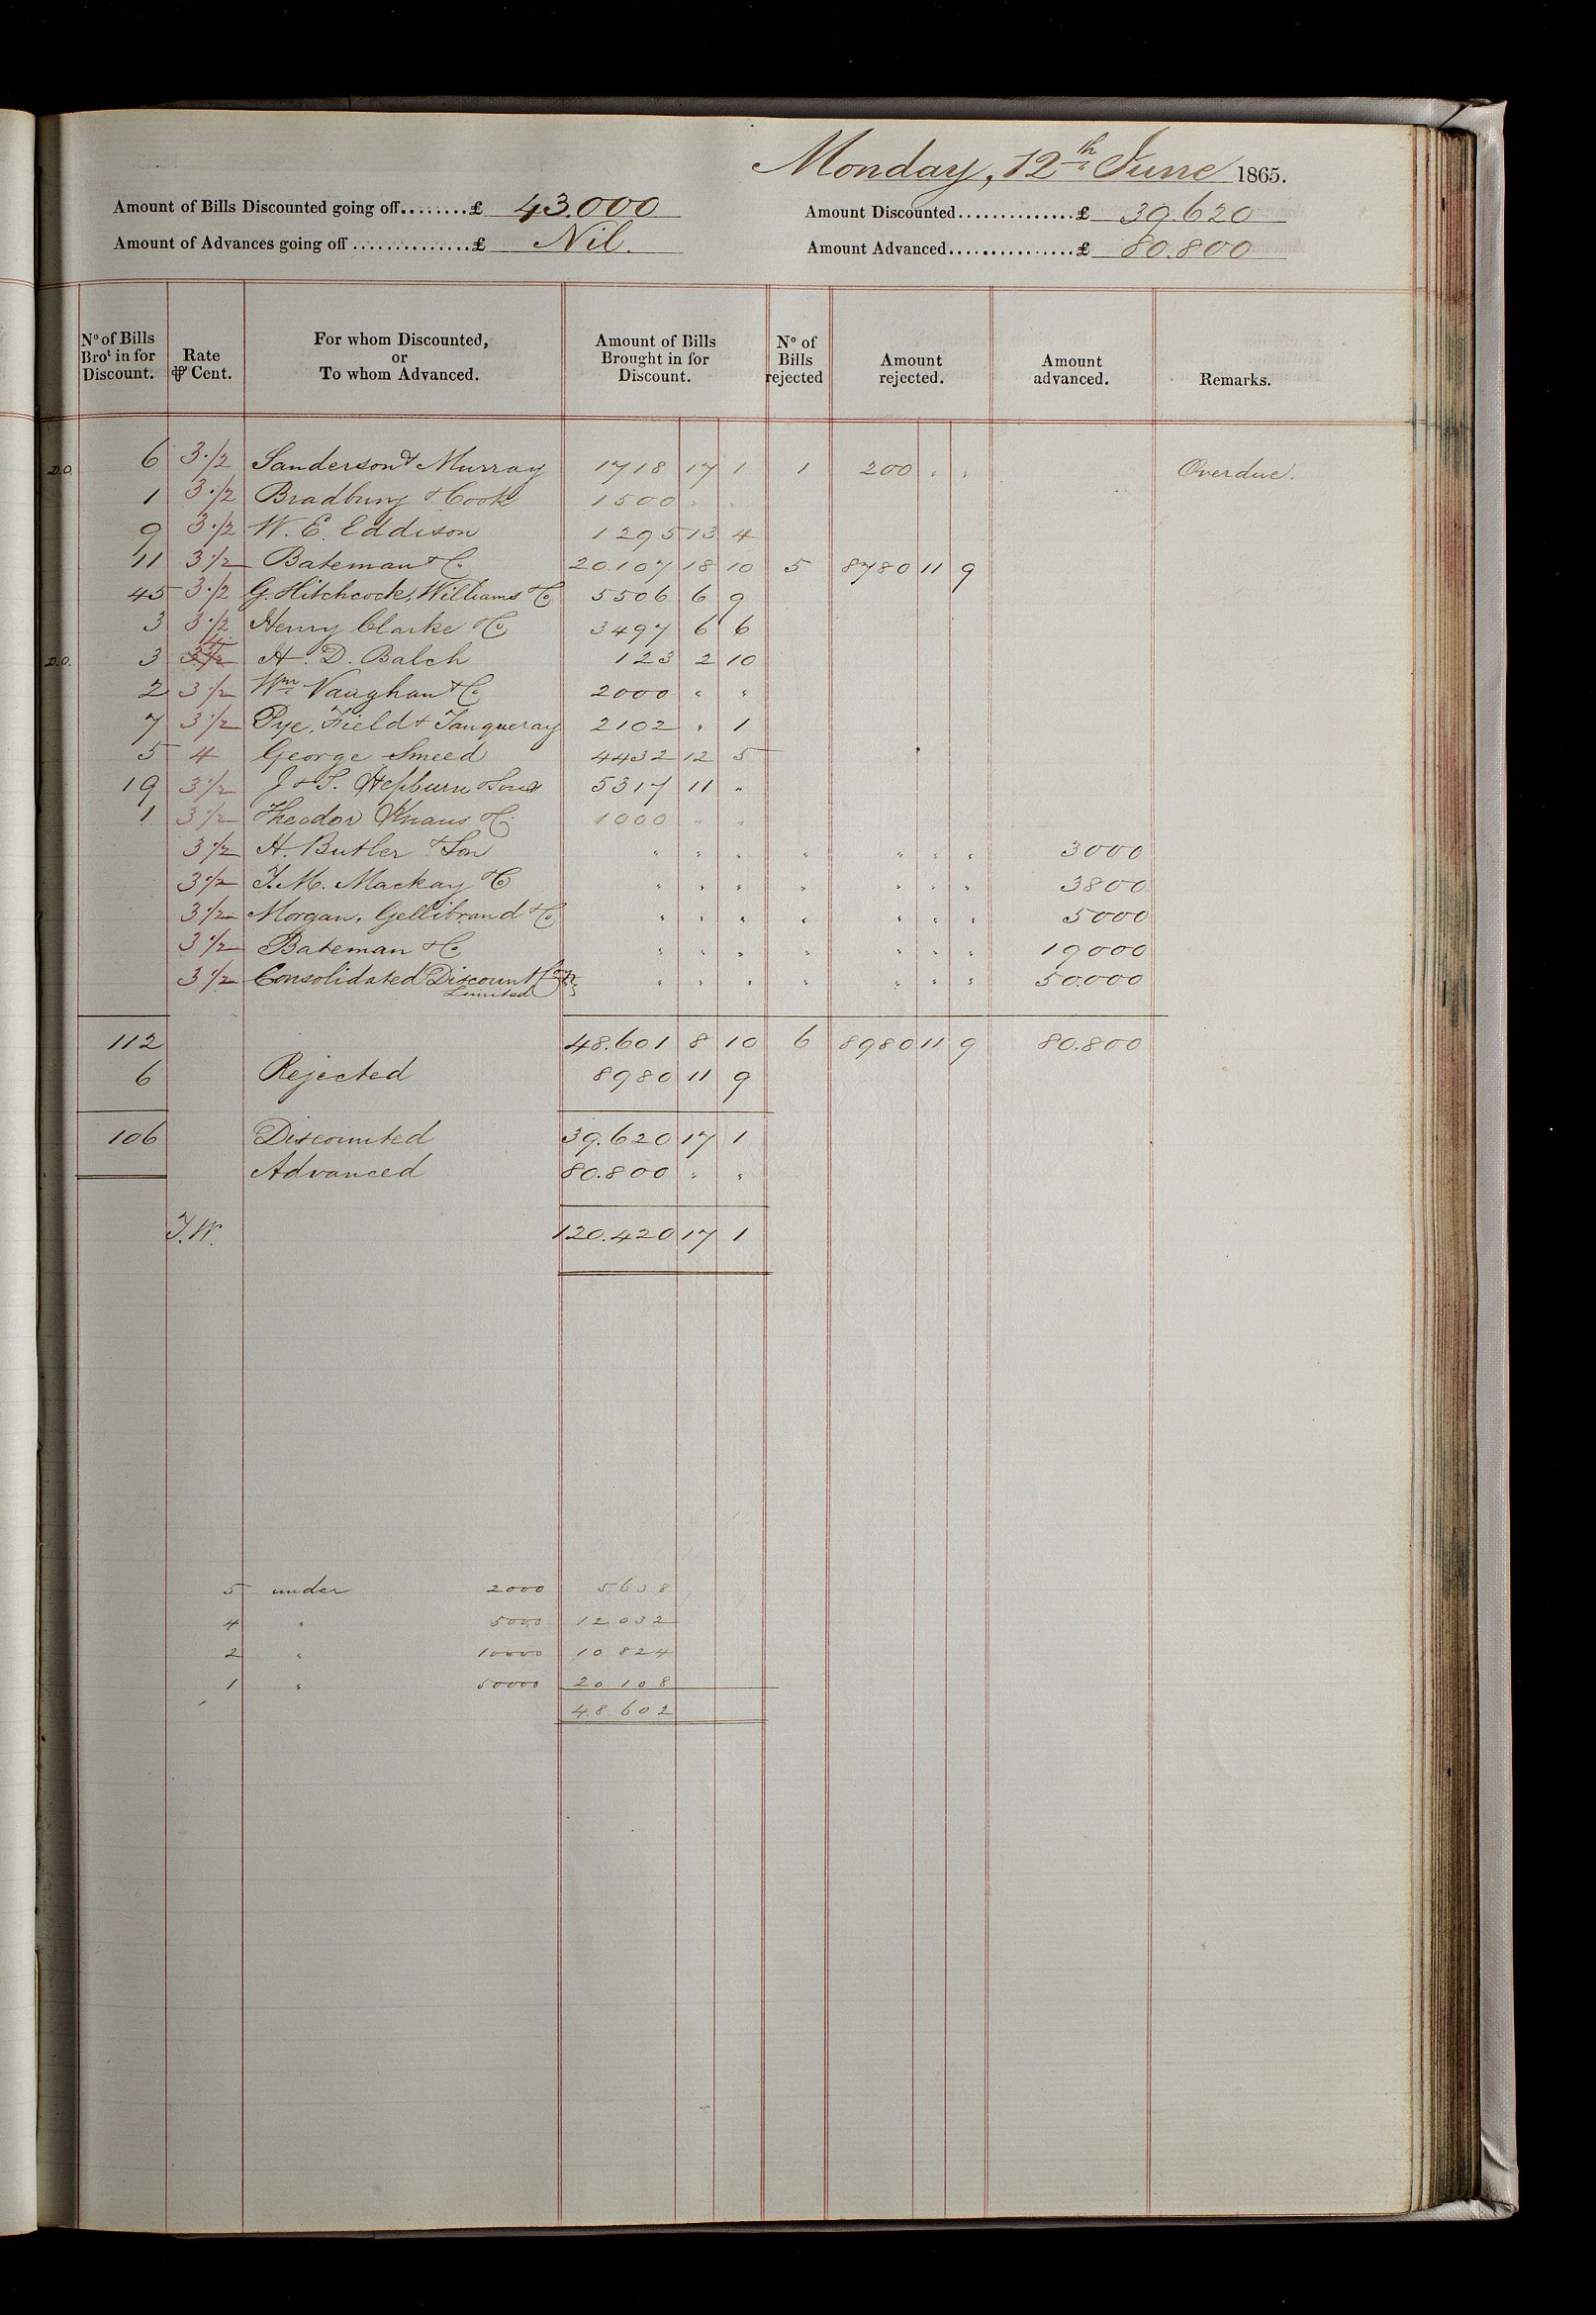 Monday, 12th June 1865.
Amount of Bills Discounted going off........£ 43.000 Amount Discounted..............£ 39.620
Amount of Advances going off...............£ Nil. Amount Advanced...............£ 80.800
No of Bills Brot in for Discount. Rate ⅌ Cent. For whom Discounted, or To whom Advanced. Amount of Bills Brought in for Discount. No of Bills rejected Amount rejected. Amount advanced. Remarks.
D.O. 6 3 1/2 Sanderson & Murray 1718 17 1 1 200 " " Overdue.
1 3 1/2 Bradbury & Cook 1500 " "
9 3 1/2 W. E. Eddison 1295 13 4
11 3 1/2 Bateman & Co 20.107 18 10 5 8780 11 9
45 3 1/2 G. Hitchcock, Williams & Co 5506 6 9
3 3 1/2 Henry Clarke & Co 3497 6 6
D.O. 3 4 3 1/2 H. D. Balch 123 2 10
2 3 1/2 Wm Vaughan & Co 2000 " "
7 3 1/2 Pye, Field & Tanqueray 2102 " 1
5 4 George Smeed 4432 12 5
19 3 1/2 J & T. Hepburn & Sons 5317 11 "
1 3 1/2 Theodor Knaus & Co 1000 " "
3 1/2 H. Butler & Son " " " " " " " 3000
3 1/2 T. M. Mackay & Co " " " " " " " 3800
3 1/2 Morgan, Gellibrand & Co " " " " " " " 5000
3 1/2 Bateman & Co " " " " " " " 19000
3 1/2 Consolidated Discount Comy " " " " " " " 50.000
Limited
112 48.601 8 10 6 8980 11 9 80.800
6 Rejected 8980 11 9
106 Discounted 39.620 17 1
Advanced 80.800 " "
T.W. 120.420 17 1
5 under 2000 5638
4 " 5000 12032
2 " 10000 10824
1 " 50000 20108
48.602